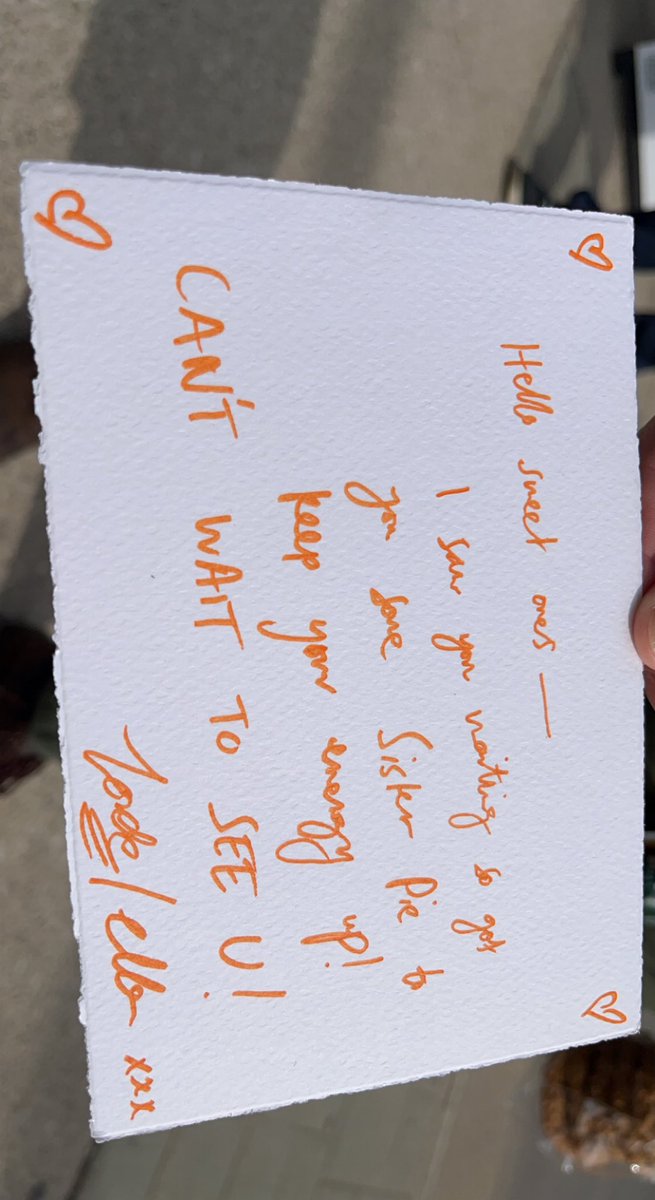 Hello sweet ones —
I saw you waiting so got
you some Sister Pie to
keep your energy up!
CAN'T WAIT TO SEE U!
/ ella xxx